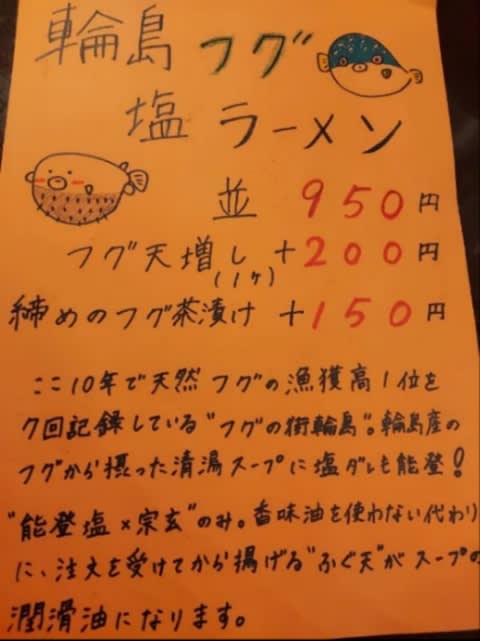 輪島フグ
塩ラーメン
並 950円
フグ天増し +200円
(1ヶ)
締めのフグ茶漬け +150円
ここ10年で天然フグの漁獲高1位を
7回記録している"フグの街輪島"。輪島産の
フグから摂った清湯スープに塩ダレも能登!
"能登塩×宗玄"のみ。香味油を使わない代わり
に、注文を受けてから揚げる"ふぐ天"がスープの
潤滑油になります。